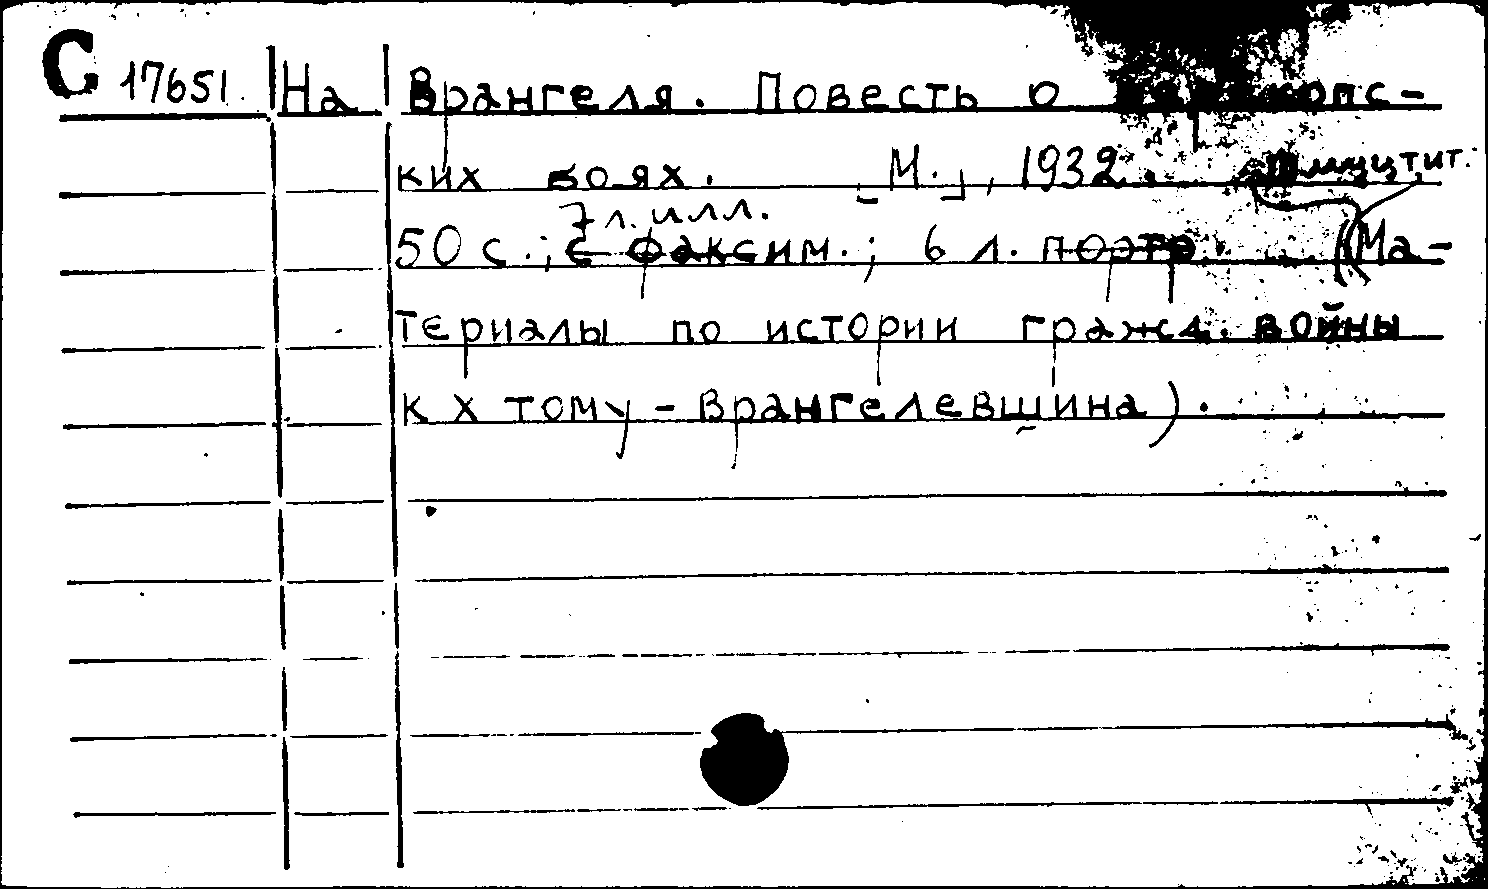 С 17651 На Врангеля. Повесть о перекопс-
ких боях. [М.], 1932. тит.
7 л. илл.
50 с.; с факсим.; 6 л. портр. (Ма-
териалы по истории гражд. войны
к X тому - Врангелевщина).